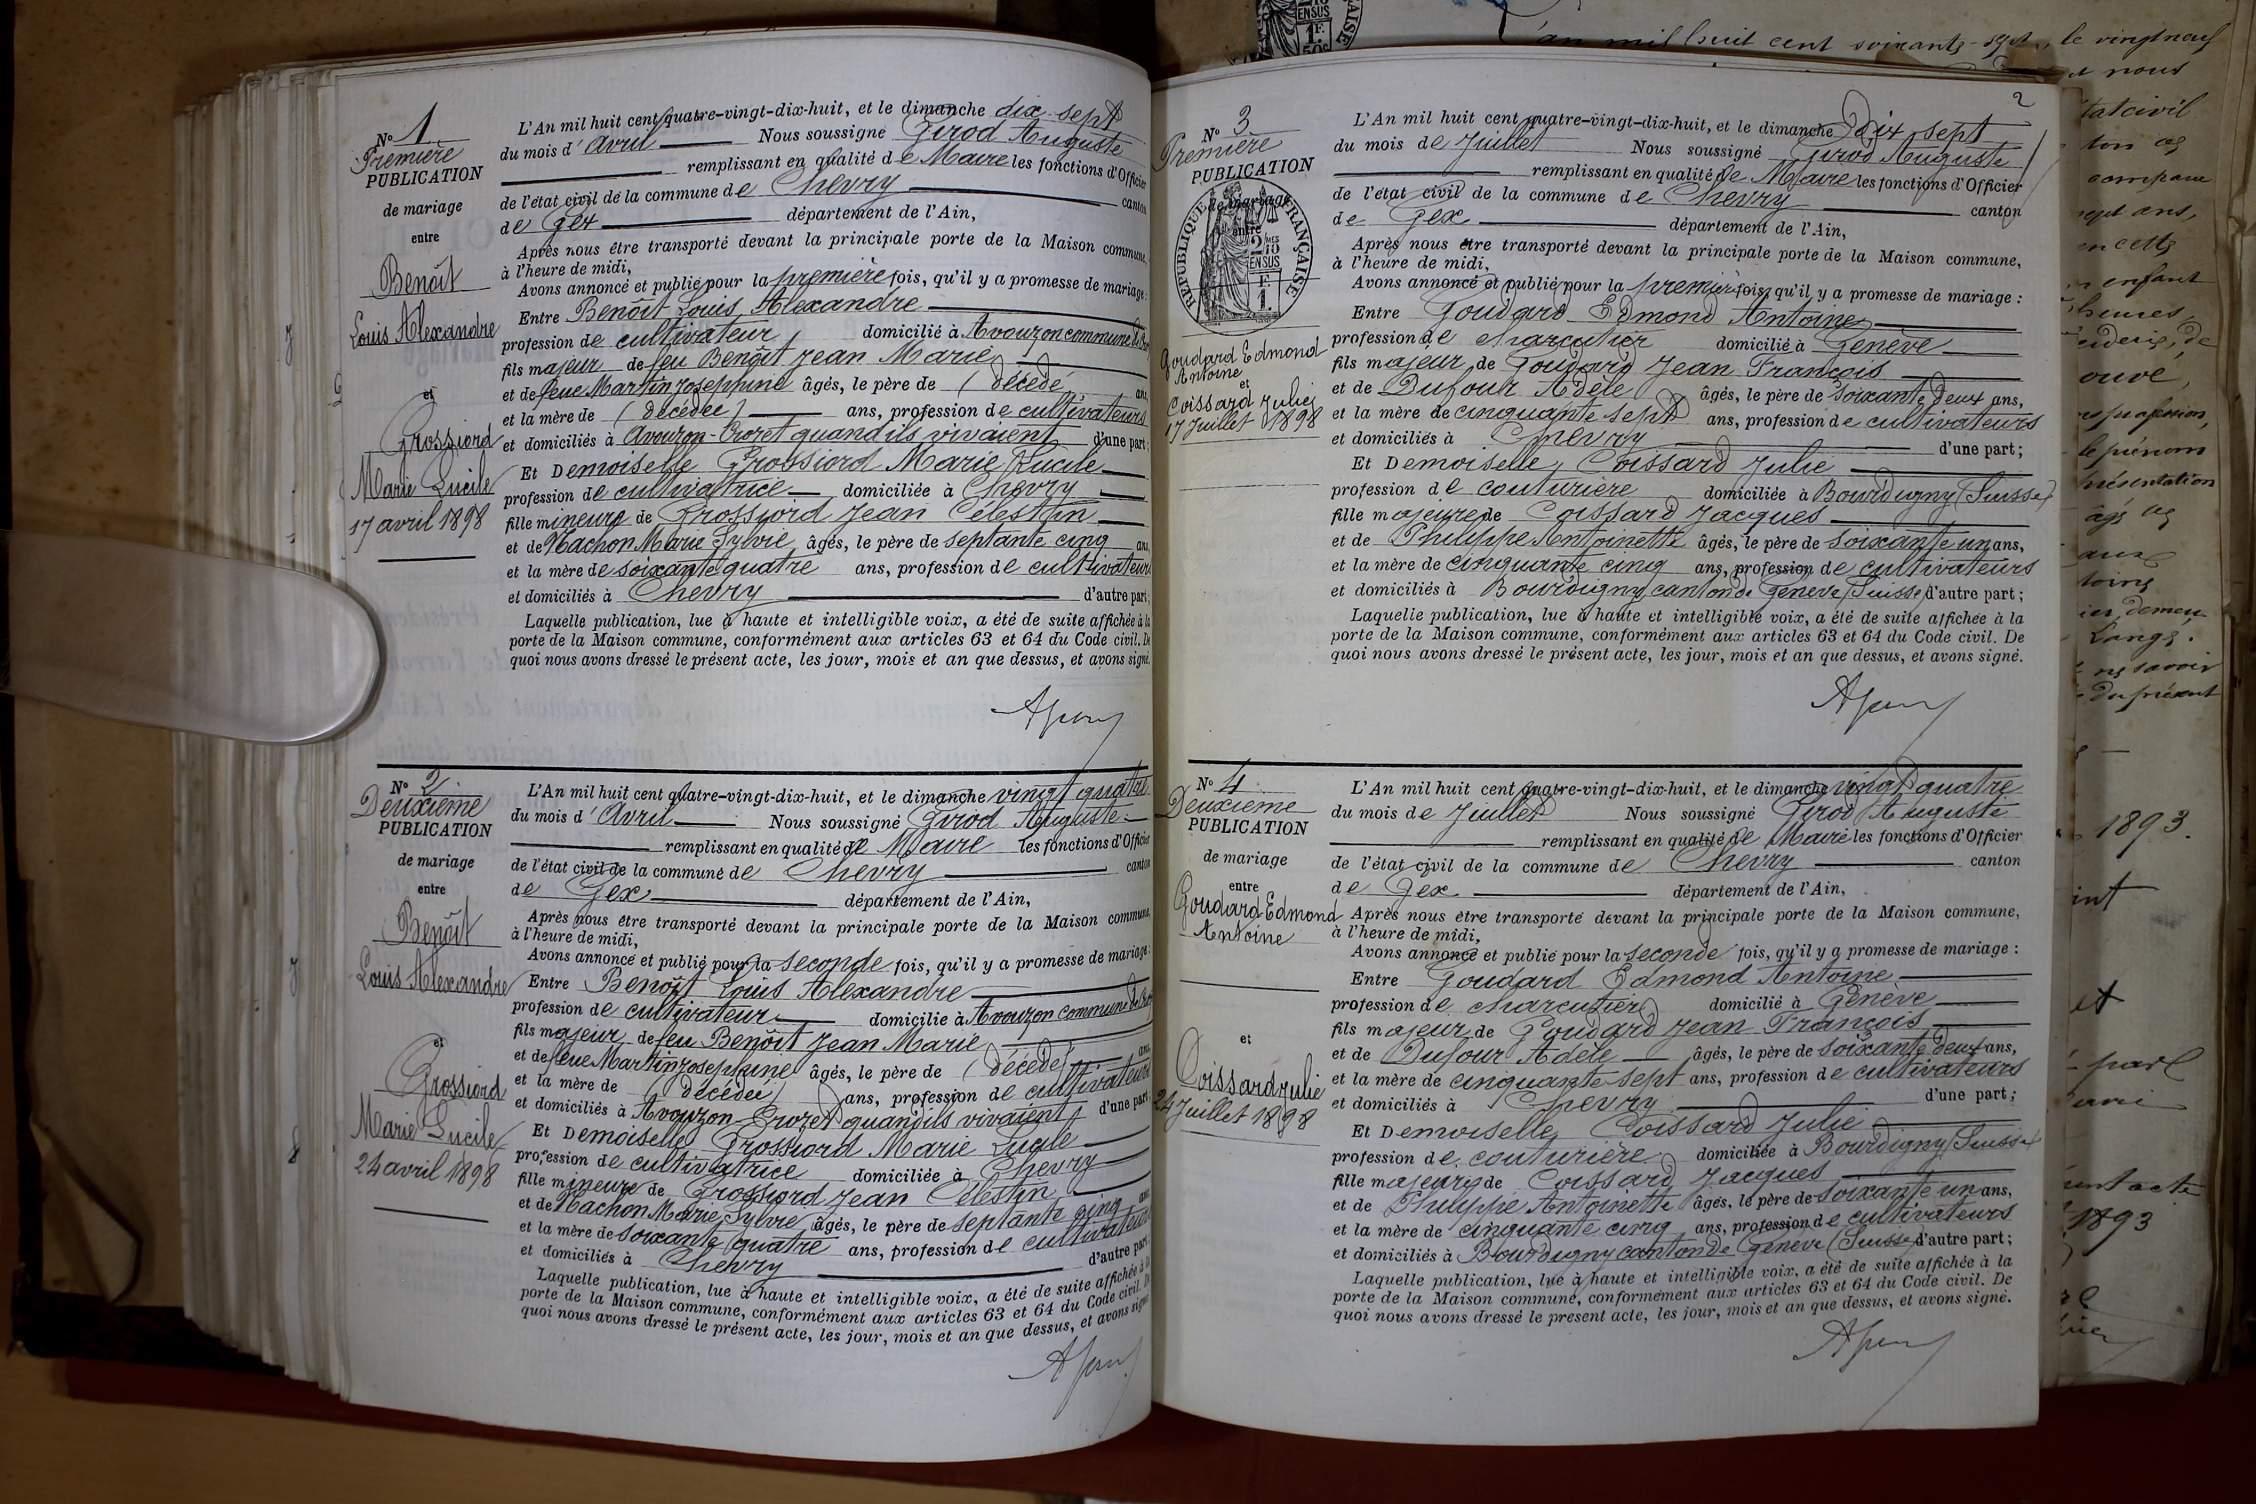 N° 1
Première
PUBLICATION
de mariage
entre
Benoît
Louis Alexandre
et
Grossiord
Marie Lucile
17 avril 1898
L'An mil huit cent quatre-vingt-dix-huit, et le dimanche dix-sept
du mois d'Avril Nous soussigné Girod Auguste
remplissant en qualité de Maire les fonctions d'Officier
de l'état civil de la commune de Chevry canton
de Gex département de l'Ain,
Après nous être transporté devant la principale porte de la Maison commune,
à l'heure de midi,
Avons annoncé et publié pour la première fois, qu'il y a promesse de mariage :
Entre Benoît Louis Alexandre
profession de cultivateur domicilié à Avouzon commune de
fils majeur de feu Benoît Jean Marie
et de feue Martin Josephine âgés, le père de (décédé ans,
et la mère de (décédée) ans, profession de cultivateurs
et domiciliés à Avouzon-Crozet quand ils vivaient d'une part ;
Et Demoiselle Grossiord Marie Lucile
profession de cultivatrice domiciliée à Chevry
fille mineure de Grossiord Jean Célestin
et de Machon Marie Sylvie âgés, le père de septante cinq ans,
et la mère de soixante quatre ans, profession de cultivateurs
et domiciliés à Chevry d'autre part ;
Laquelle publication, lue à haute et intelligible voix, a été de suite affichée à la
porte de la Maison commune, conformément aux articles 63 et 64 du Code civil. De
quoi nous avons dressé le présent acte, les jour, mois et an que dessus, et avons signé.
N° 2
Deuxième
PUBLICATION
de mariage
entre
Benoît
Louis Alexandre
et
Grossiord
Marie Lucile
24 avril 1898
L'An mil huit cent quatre-vingt-dix-huit, et le dimanche vingt quatre
du mois d'Avril Nous soussigné Girod Auguste
remplissant en qualité de Maire les fonctions d'Officier
de l'état civil de la commune de Chevry canton
de Gex département de l'Ain,
Après nous être transporté devant la principale porte de la Maison commune,
à l'heure de midi,
Avons annoncé et publié pour la seconde fois, qu'il y a promesse de mariage :
Entre Benoît Louis Alexandre
profession de cultivateur domicilié à Avouzon commune de
fils majeur de feu Benoît Jean Marie
et de feue Martin Josephine âgés, le père de (décédé) ans,
et la mère de (décédée) ans, profession de cultivateurs
et domiciliés à Avouzon-Crozet quand ils vivaient d'une part
Et Demoiselle Grossiord Marie Lucile
profession de cultivatrice domiciliée à Chevry
fille mineure de Grossiord Jean Célestin
et de Machon Marie Sylvie âgés, le père de septante cinq ans,
et la mère de soixante quatre ans, profession de cultivateurs
et domiciliés à Chevry d'autre part
Laquelle publication, lue à haute et intelligible voix, a été de suite affichée à la
porte de la Maison commune, conformément aux articles 63 et 64 du Code civil. De
quoi nous avons dressé le présent acte, les jour, mois et an que dessus, et avons signé
2
N° 3
Première
PUBLICATION
de mariage
entre
RÉPUBLIQUE FRANÇAISE
2/10 MES
EN SUS
1 F.
Goudard Edmond
Antoine
et
Coissard Julie
17 Juillet 1898
L'An mil huit cent quatre-vingt-dix-huit, et le dimanche Dix sept
du mois de Juillet Nous soussigné Girod Auguste
remplissant en qualité de Maire les fonctions d'Officier
de l'état civil de la commune de Chevry canton
de Gex département de l'Ain,
Après nous être transporté devant la principale porte de la Maison commune,
à l'heure de midi,
Avons annoncé et publié pour la première fois, qu'il y a promesse de mariage :
Entre Goudard Edmond Antoine
profession de charcutier domicilié à Genève
fils majeur de Goudard Jean François
et de Dufour Adèle âgés, le père de soixante deux ans,
et la mère de cinquante sept ans, profession de cultivateurs
et domiciliés à Chevry d'une part ;
Et Demoiselle Coissard Julie
profession de couturière domiciliée à Bourdigny (Suisse)
fille majeure de Coissard Jacques
et de Philippe Antoinette âgés, le père de soixante un ans,
et la mère de cinquante cinq ans, profession de cultivateurs
et domiciliés à Bourdigny canton de Genève (Suisse) d'autre part ;
Laquelle publication, lue à haute et intelligible voix, a été de suite affichée à la
porte de la Maison commune, conformément aux articles 63 et 64 du Code civil. De
quoi nous avons dressé le présent acte, les jour, mois et an que dessus, et avons signé.
N° 4
Deuxième
PUBLICATION
de mariage
entre
Goudard Edmond
Antoine
et
Coissard Julie
24 Juillet 1898
L'An mil huit cent quatre-vingt-dix-huit, et le dimanche vingt quatre
du mois de Juillet Nous soussigné Girod Auguste
remplissant en qualité de Maire les fonctions d'Officier
de l'état civil de la commune de Chevry canton
de Gex département de l'Ain,
Après nous être transporté devant la principale porte de la Maison commune,
à l'heure de midi,
Avons annoncé et publié pour la seconde fois, qu'il y a promesse de mariage :
Entre Goudard Edmond Antoine
profession de charcutier domicilié à Genève
fils majeur de Goudard Jean François
et de Dufour Adèle âgés, le père de soixante deux ans,
et la mère de cinquante sept ans, profession de cultivateurs
et domiciliés à Chevry d'une part ;
Et Demoiselle Coissard Julie
profession de couturière domiciliée à Bourdigny (Suisse)
fille majeure de Coissard Jacques
et de Philippe Antoinette âgés, le père de soixante un ans,
et la mère de cinquante cinq ans, profession de cultivateurs
et domiciliés à Bourdigny canton de Genève (Suisse) d'autre part ;
Laquelle publication, lue à haute et intelligible voix, a été de suite affichée à la
porte de la Maison commune, conformément aux articles 63 et 64 du Code civil. De
quoi nous avons dressé le présent acte, les jour, mois et an que dessus, et avons signé.
EN SUS
1 F.
50c
l'an mil huit cent soixante-sept, le vingt neuf
nous
état civil
compare
sept ans,
en cette
enfant
heures
de
profession,
le prénom
présentation
âgé de
ans
demeu
Lange.
savoir
du présent
1893.
et
part
acte
1893